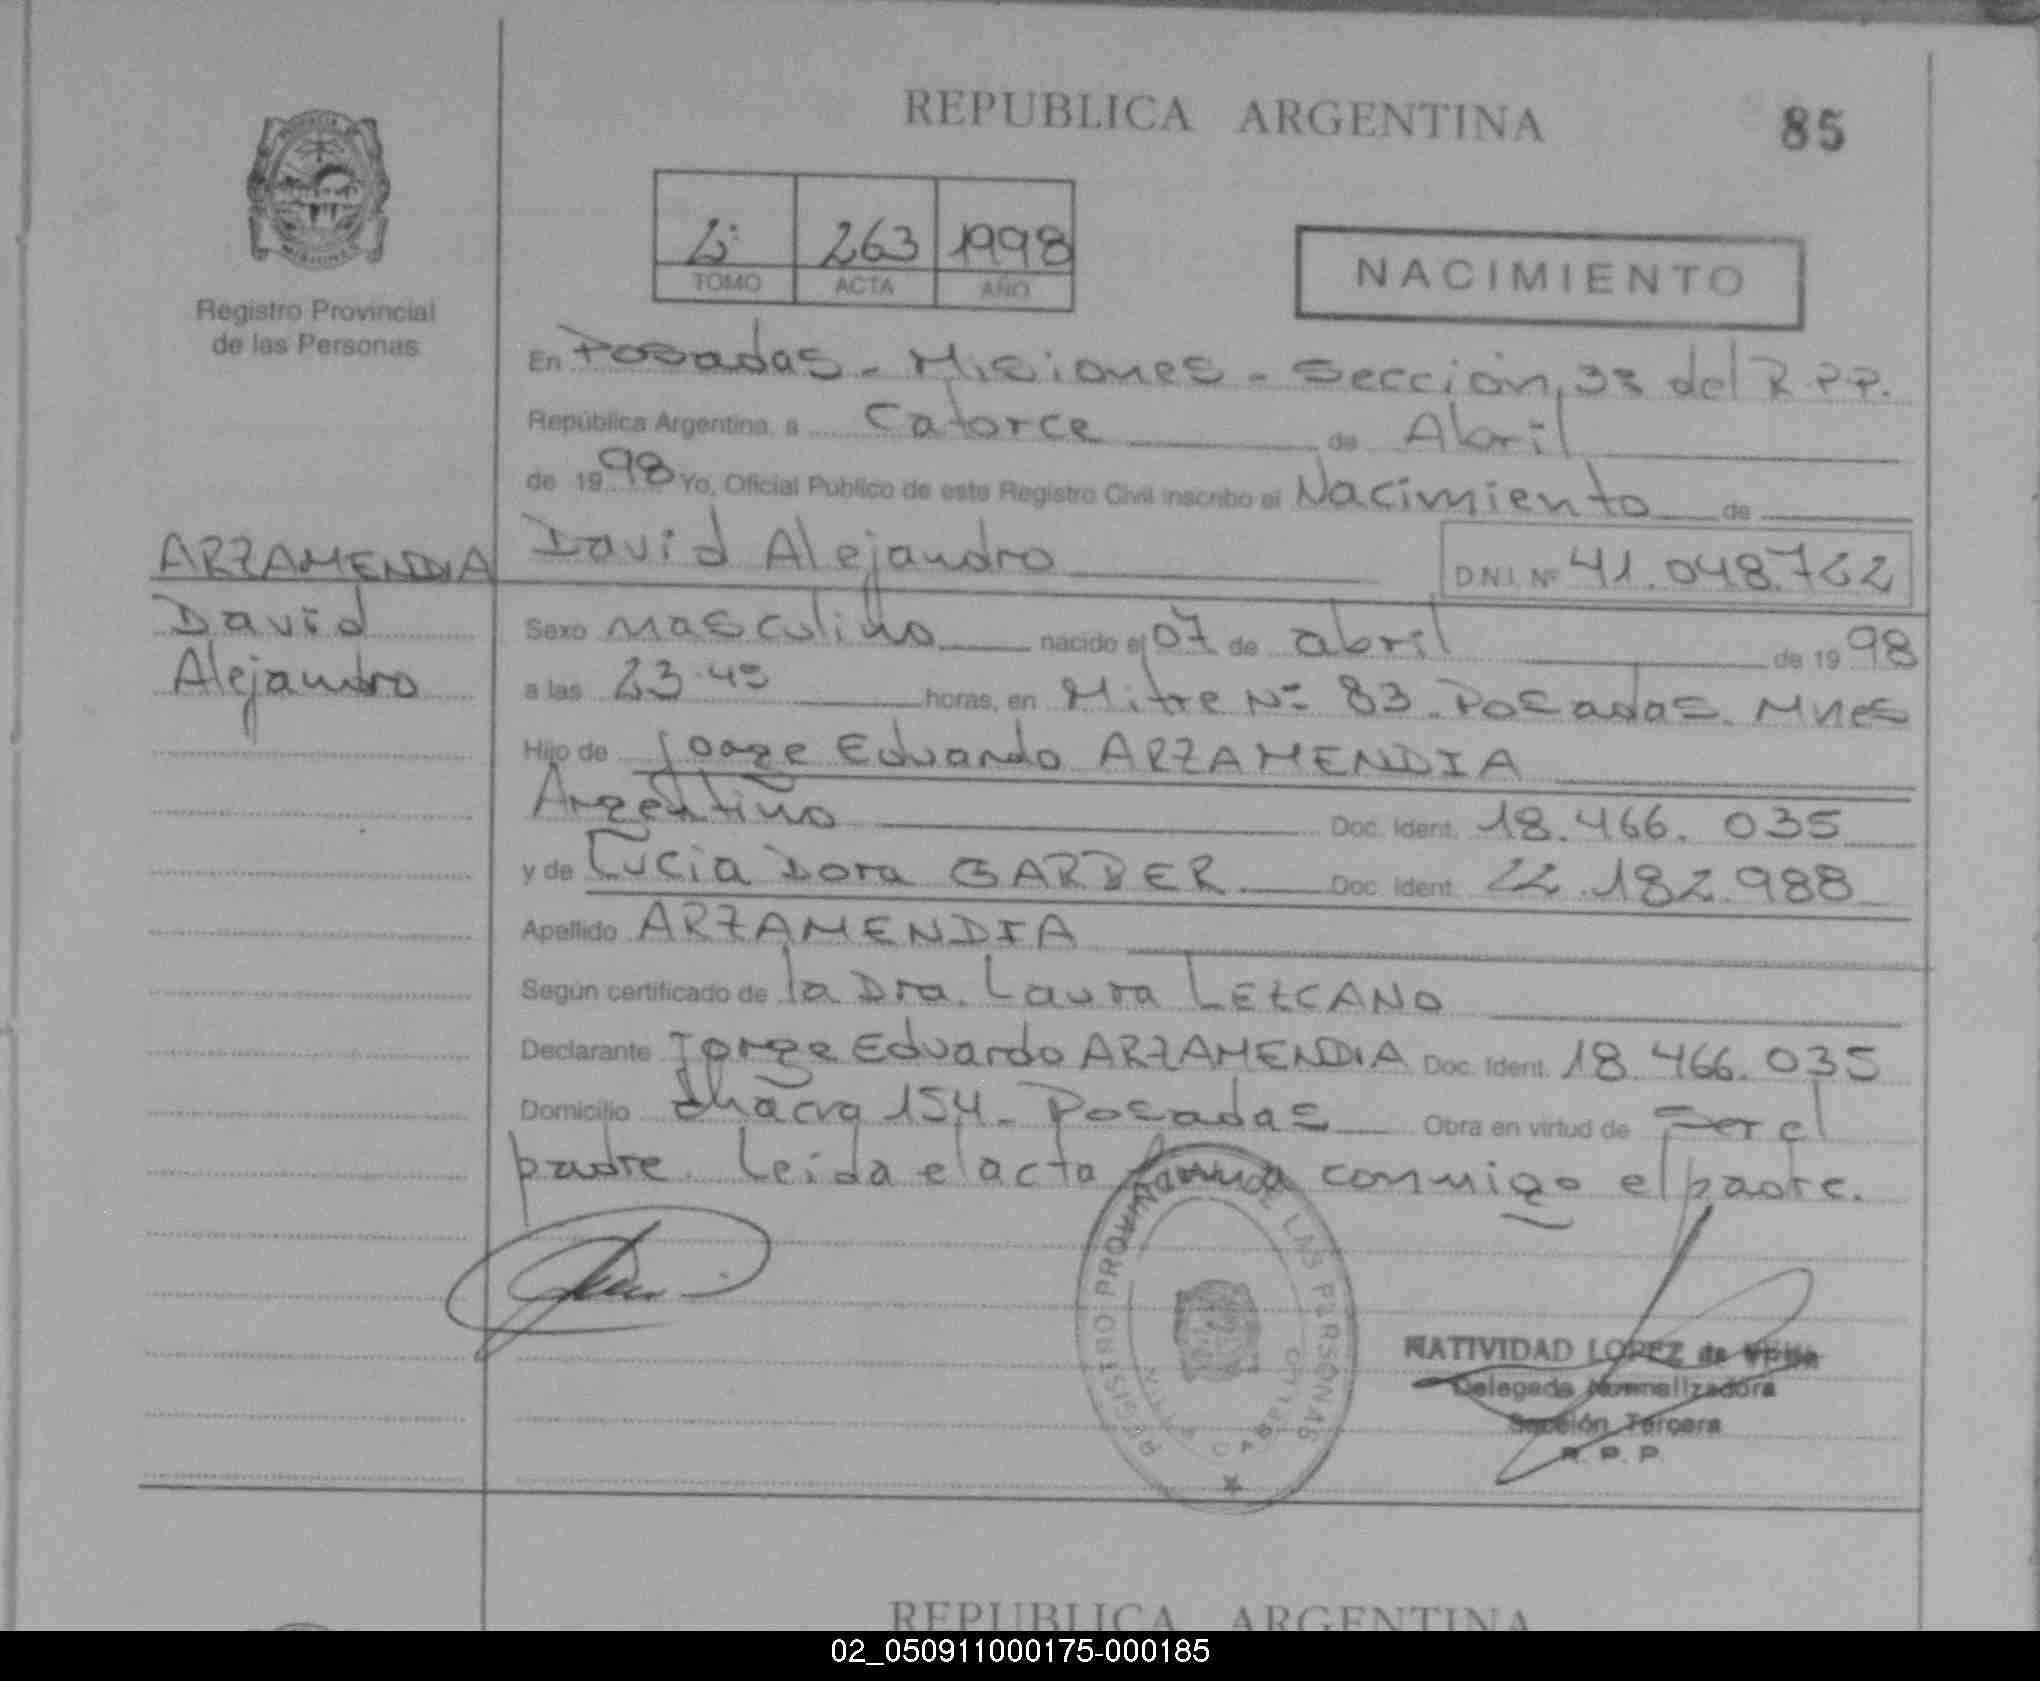 REPUBLICA ARGENTINA
85
2º 263 1998
TOMO ACTA AÑO
NACIMIENTO
Registro Provincial
de las Personas
En Posadas - Misiones - Sección 3ª del R.P.P.
República Argentina, a Catorce de Abril
de 1998 Yo, Oficial Público de este Registro Civil inscribo el Nacimiento de
ARZAMENDIA
David
Alejandro
David Alejandro D.N.I. Nº 41.048.722
Sexo masculino nacido el 07 de abril de 1998
a las 23.45 horas, en Mitre Nº 83. Posadas. Mnes
Hijo de Jorge Eduardo ARZAMENDIA
Argentino Doc. Ident. 18.466.035
y de Lucia Dora GARBER Doc. Ident. 22.182.988
Apellido ARZAMENDIA
Según certificado de la Dra. Laura LEZCANO
Declarante Jorge Eduardo ARZAMENDIA Doc. Ident. 18.466.035
Domicilio chacra 154 - Posadas Obra en virtud de ser el
padre. Leida el acta firma conmigo el padre.
REGISTRO PROVINCIAL DE LAS PERSONAS
NATIVIDAD LOPEZ de
Delegada Normalizadora
Sección Tercera
R. P. P.
REPUBLICA ARGENTINA
02_050911000175-000185